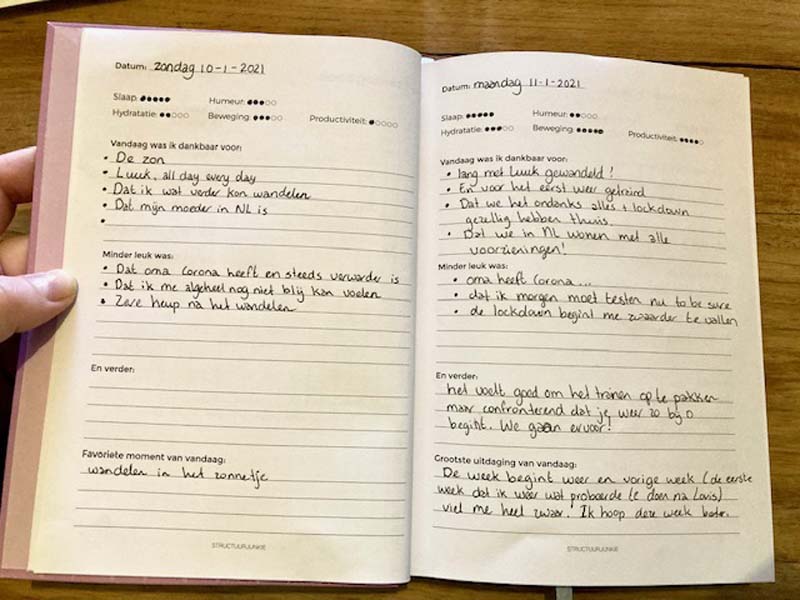 Datum: zondag 10-1-2021
Slaap: ●●●●●
Humeur: ●●●○○
Hydratatie: ●●○○○
Beweging: ●●●○○
Productiviteit: ●○○○○
Vandaag was ik dankbaar voor:
• De zon
• Luuk, all day every day
• Dat ik wat verder kon wandelen
• Dat mijn moeder in NL is
•
Minder leuk was:
• Dat oma Corona heeft en steeds verwarder is
• Dat ik me algeheel nog niet blij kan voelen
• Zere heup na het wandelen
En verder:
Favoriete moment van vandaag:
wandelen in het zonnetje
STRUCTUURJUNKIE
Datum: maandag 11-1-2021
Slaap: ●●●●●
Humeur: ●●○○○
Hydratatie: ●●●○○
Beweging: ●●●●●
Productiviteit: ●●●●○
Vandaag was ik dankbaar voor:
• lang met Luuk gewandeld!
• En voor het eerst weer getraind
• Dat we het ondanks alles + lockdown
gezellig hebben thuis.
• Dat we in NL wonen met alle
voorzieningen!
Minder leuk was:
• oma heeft Corona...
• dat ik morgen moet testen nu to be sure
• de lockdown begint me zwaarder te vallen
En verder:
het voelt goed om het trainen op te pakken
maar confronterend dat je weer zo bij 0
begint. We gaan ervoor!
Grootste uitdaging van vandaag:
De week begint weer en vorige week (de eerste
week dat ik weer wat probeerde te doen na Lovis)
viel me heel zwaar. Ik hoop deze week beter.
STRUCTUURJUNKIE